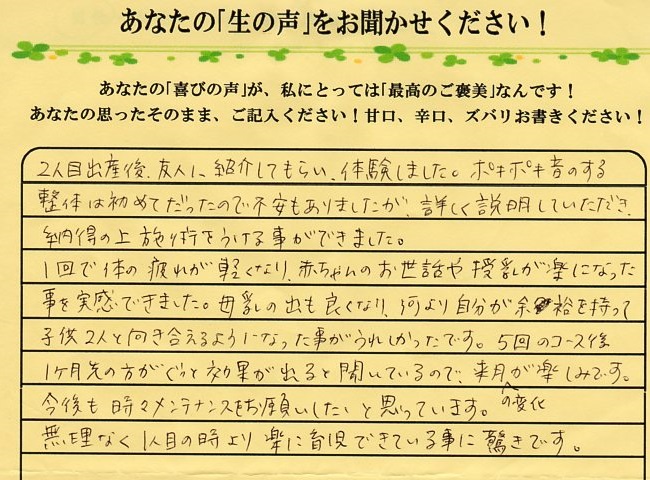 あなたの「生の声」をお聞かせください！
あなたの「喜びの声」が、私にとっては「最高のご褒美」なんです！
あなたの思ったそのまま、ご記入ください！甘口、辛口、ズバリお書きください！
2人目出産後、友人に紹介してもらい、体験しました。ポキポキ音のする
整体は初めてだったので不安もありましたが、詳しく説明していただき、
納得の上施術をうける事ができました。
1回で体の疲れが軽くなり、赤ちゃんのお世話や授乳が楽になった
事を実感できました。母乳の出も良くなり、何より自分が余裕を持って
子供2人と向き合えるようになった事がうれしかったです。5回のコース後
1ヶ月先の方がぐっと効果が出ると聞いているので、来月の変化が楽しみです。
今後も時々メンテナンスをお願いしたいと思っています。
無理なく1人目の時より楽に育児できている事に驚きです。